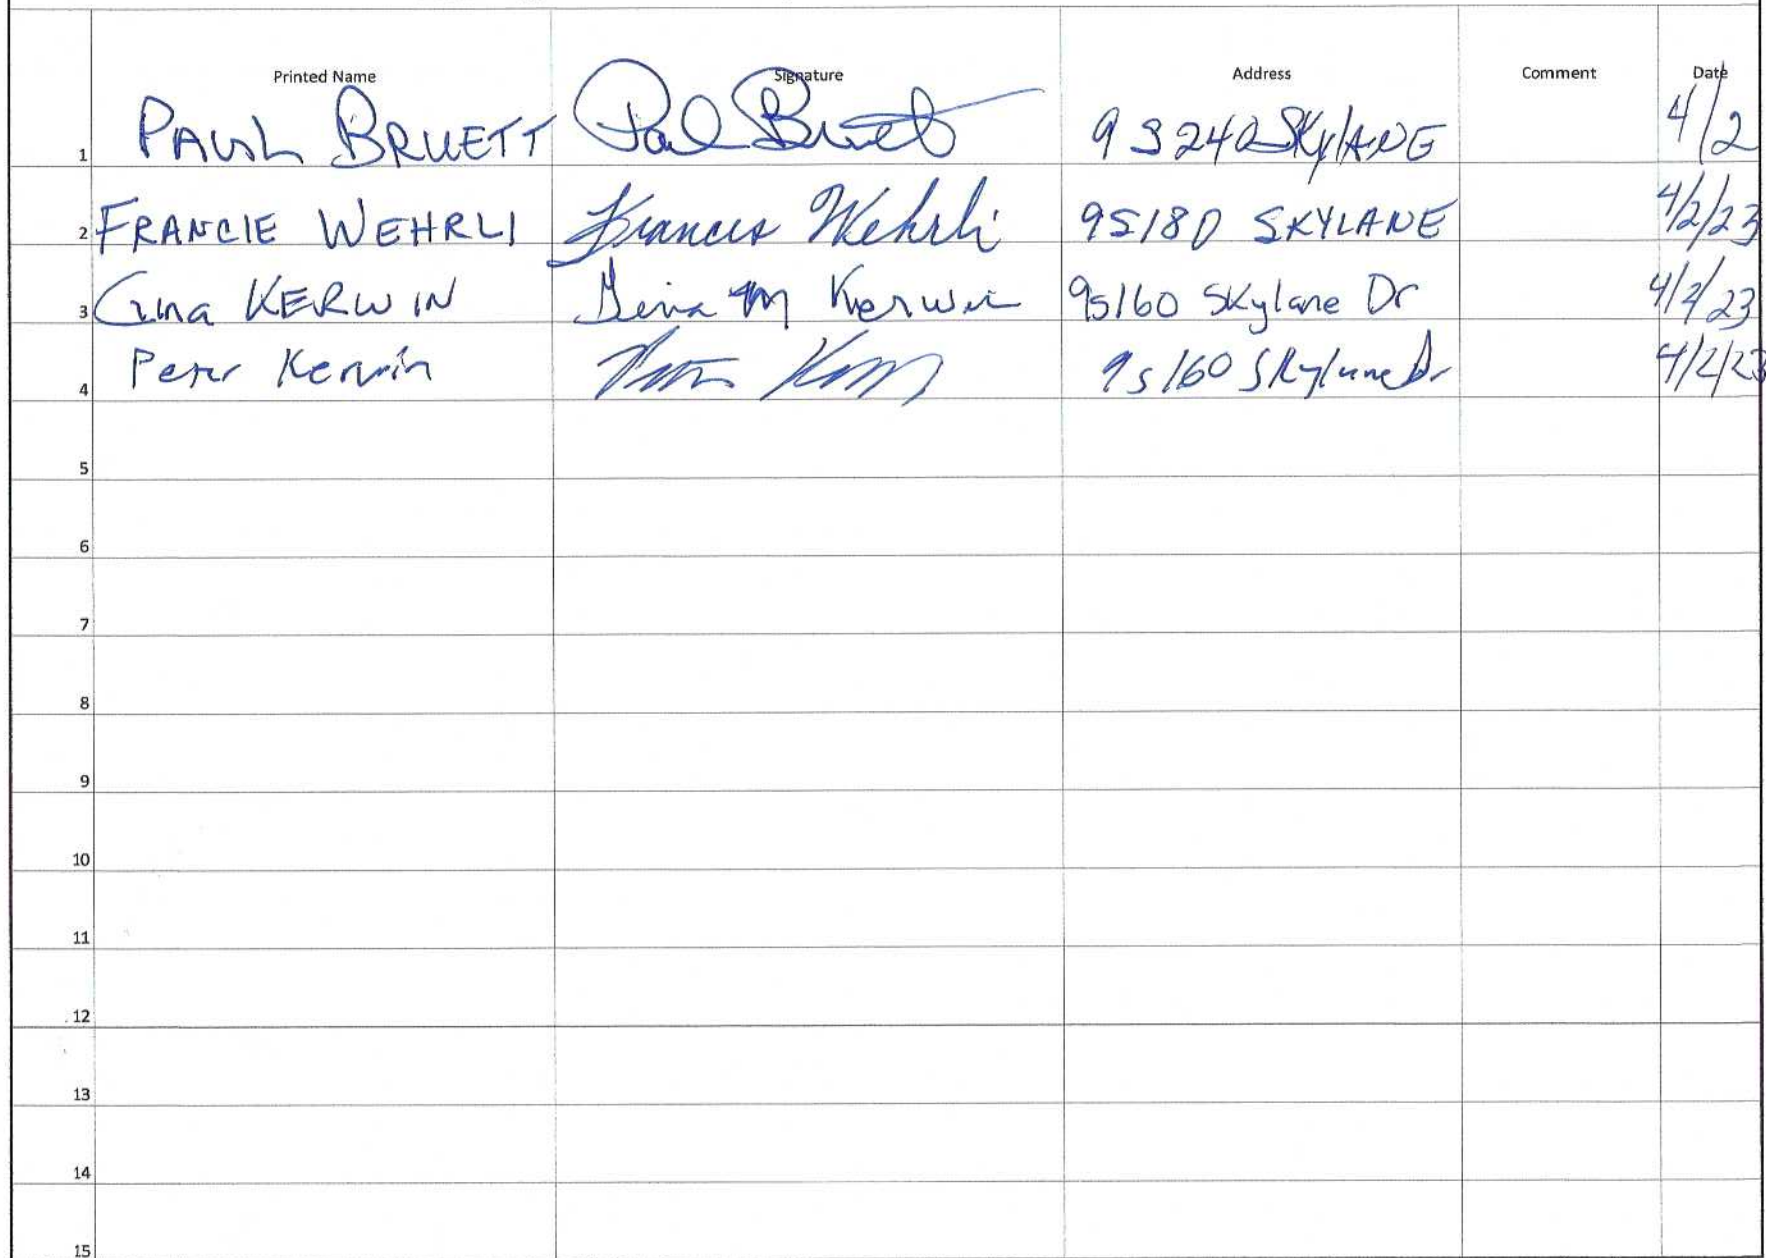 Printed Name Signature Address Comment Date
1 PAUL BRUETT Paul Bruett SKYLANE 4/2
2 FRANCIE WEHRLI Francis Wehrli 95180 SKYLANE 4/2/23
3 Gina KERWIN Gina M Kerwin 95160 Skylane Dr 4/2/23
4 Peter Kerwin 95160 Skylane Dr 4/2/23
5
6
7
8
9
10
11
12
13
14
15